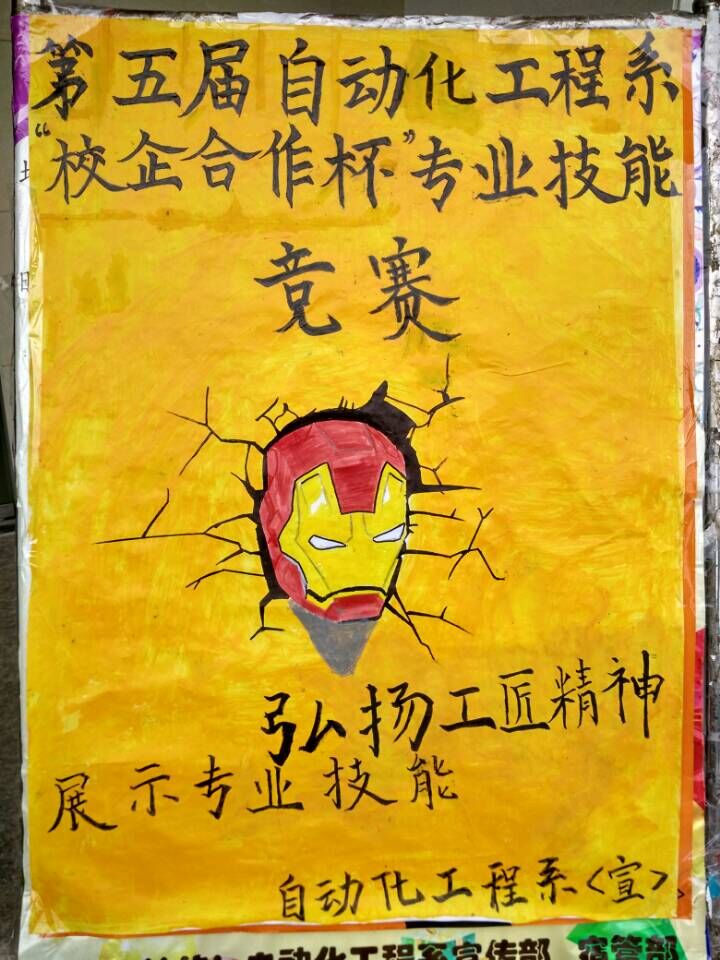 第五届自动化工程系
“校企合作杯”专业技能
竞赛
弘扬工匠精神
展示专业技能
自动化工程系<宣>
自动化工程系宣传部 宿管部